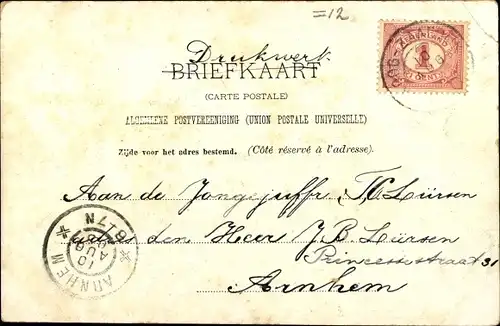 =12
Drukwerk
BRIEFKAART
(CARTE POSTALE)
ALGEMEENE POSTVEREENIGING (UNION POSTALE UNIVERSELLE)
Zijde voor het adres bestemd. (Côté réservé à l'adresse).
Aan de Jongejuffr. Lürsen
adres den Heer J B Lürsen
Princessestraat 31
Arnhem
1
CENT
ARNHEM
10
AUG